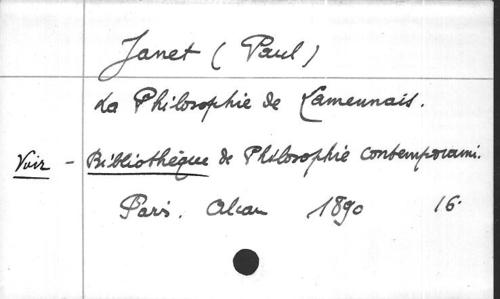 Janet (Paul)
La Philosophie de Lamennais.
Voir - Bibliothèque de Philosophie Contemporami.
Paris. Alcan 1890 16.